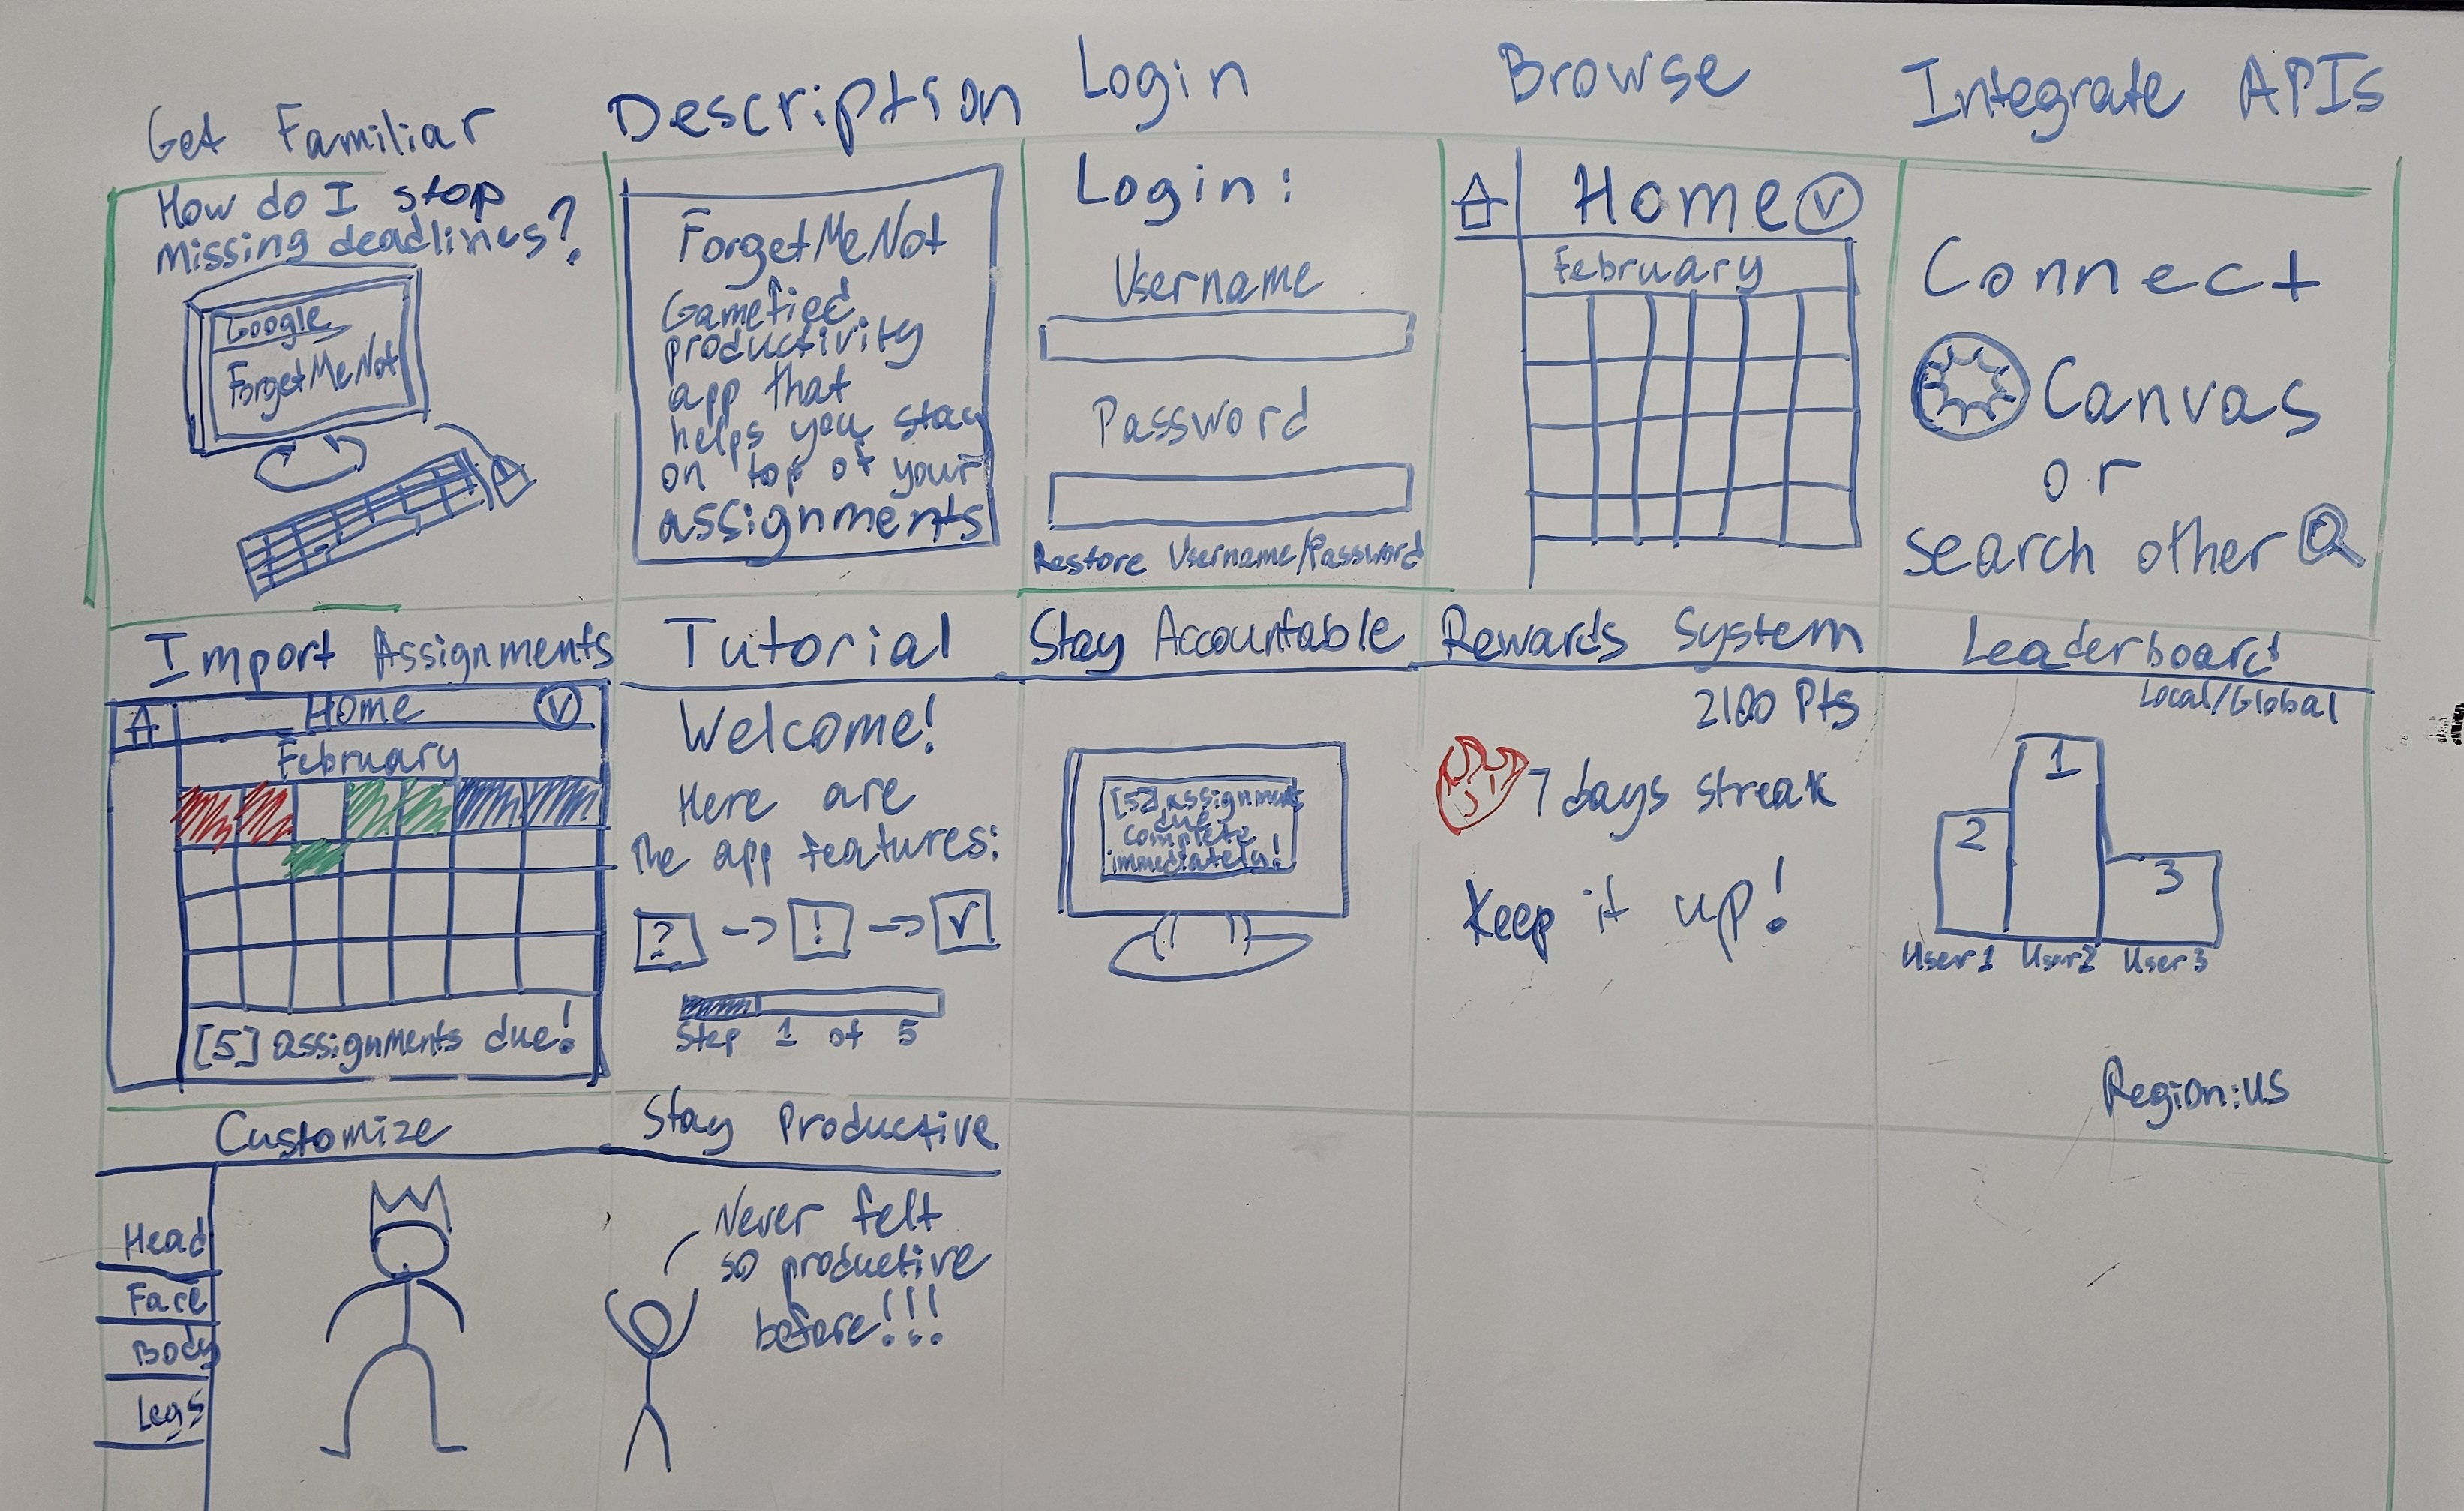 Get Familiar
How do I stop
missing deadlines?
Google
ForgetMeNot
Description
ForgetMeNot
Gamefied
productivity
app that
helps you stay
on top of your
assignments
Login
Login:
Username
Password
Restore Username/Password
Browse
Home
February
Integrate APIs
Connect
Canvas
or
search other
Import Assignments
Home
February
[5] assignments due!
Tutorial
Welcome!
Here are
the app features:
? -> ! -> √
Step 1 of 5
Stay Accountable
[5] assignments
due
complete
immediately!
Rewards System
2100 Pts
7 days streak
Keep it up!
Leaderboard
Local/Global
1
2
3
User1 User2 User3
Region:US
Customize
Head
Face
Body
Legs
Stay Productive
Never felt
so productive
before!!!